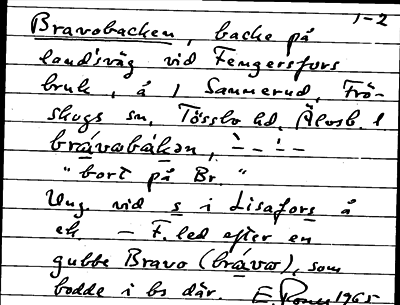 1-2
Bravobacken, backe på
landsväg vid Fengersfors
bruk, å 1 Sannerud, Frö-
skogs sn, Tössbo hd, Älvsb. l
bràvωbákən,
"bort på Br."
Ung. vid s i Lisafors å
ek. — F.led efter en
gubbe Bravo (bràvω), som
bodde i bs där. E. 1965